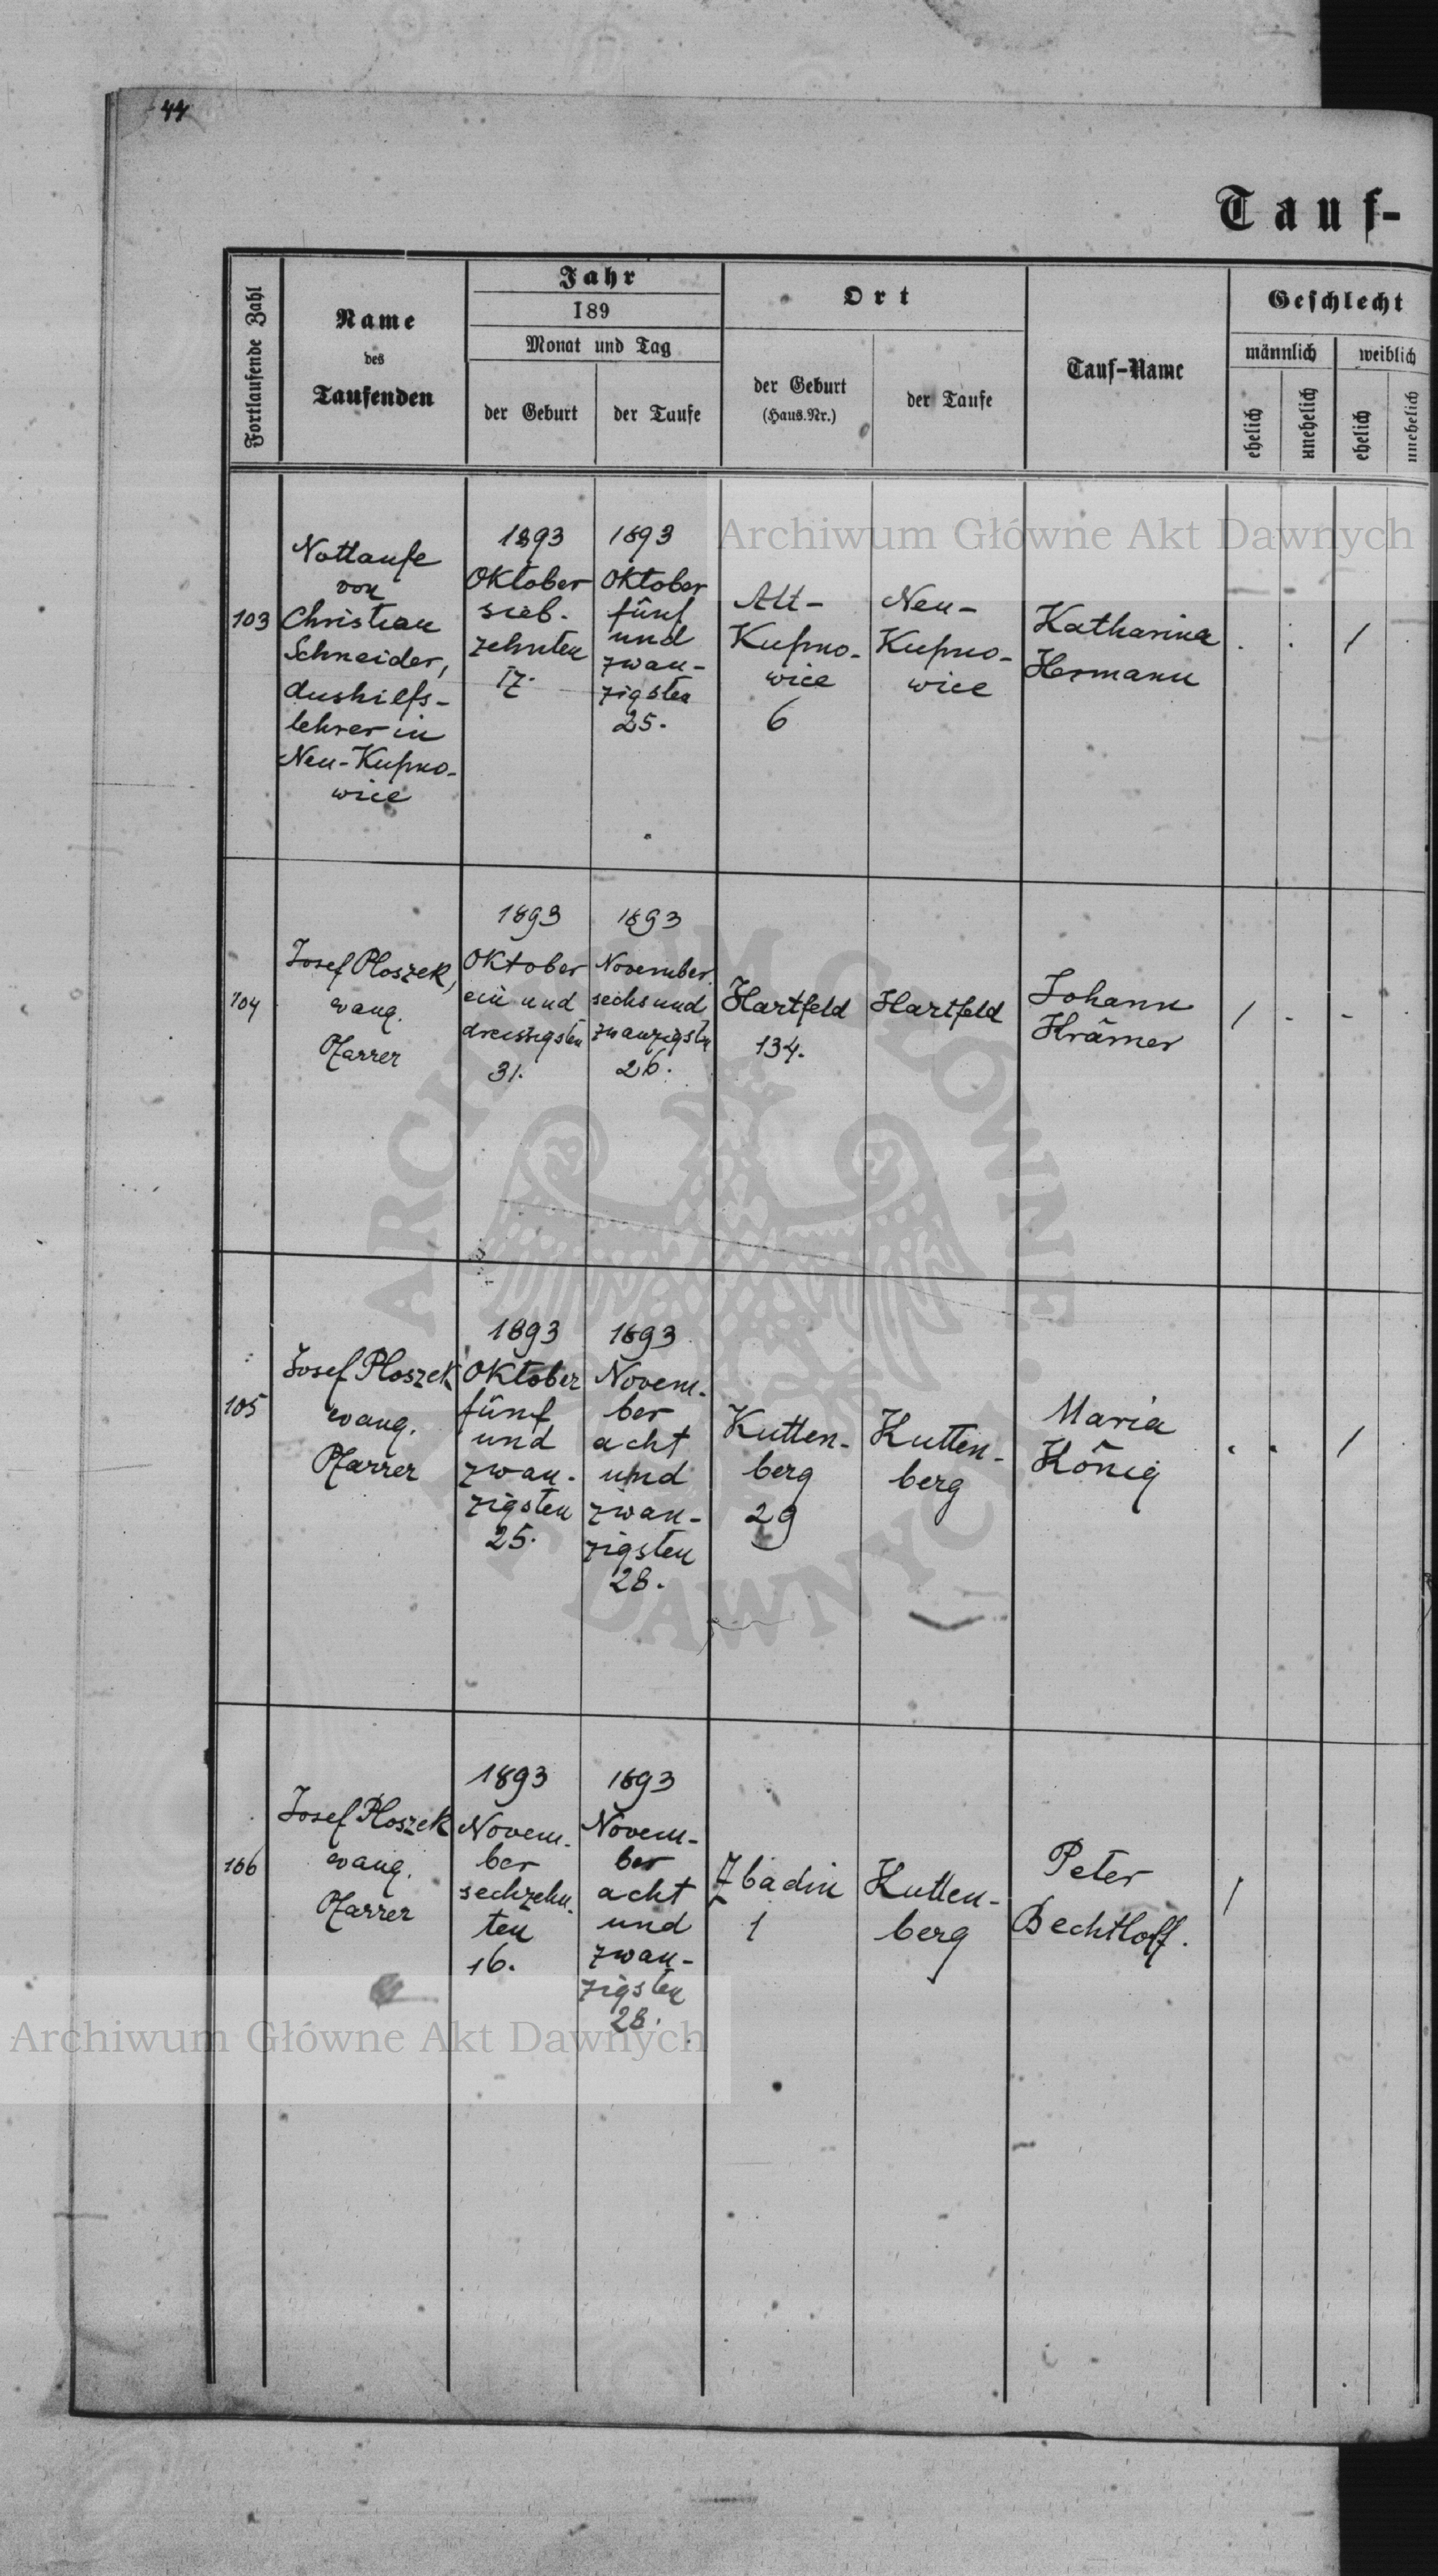 44
Tauf-
Fortlaufende Zahl
Name
des
Taufenden
Jahr
189
Monat und Tag
der Geburt
der Taufe
Ort
der Geburt
(Haus.Nr.)
der Taufe
Tauf-Name
Geschlecht
männlich
weiblich
ehelich
unehelich
ehelich
unehelich
Archiwum Główne Akt Dawnych
103
Nottaufe
von
Christian
Schneider,
Aushilfs-
lehrer in
Neu-Kupno-
wice
1893
Oktober
sieb-
zehnten
17.
1893
Oktober
fünf
und
zwan-
zigsten
25.
Alt-
Kupno-
wice
6
Neu-
Kupno-
wice
Katharina
Hermann
. . 1
104
Josef Ploszek,
evang.
Pfarrer
1893
Oktober
ein und
dreissigsten
31.
1893
November
sechs und
zwanzigsten
26.
Hartfeld
134.
Hartfeld
Johann
Krämer
1 - -
105
Josef Ploszek
evang.
Pfarrer
1893
Oktober
fünf
und
zwan-
zigsten
25.
1893
Novem-
ber
acht
und
zwan-
zigsten
28.
Kutten-
berg
29
Kutten-
berg
Maria
König
. . 1
106
Josef Ploszek
evang.
Pfarrer
1893
Novem-
ber
sechzehn-
ten
16.
1893
Novem-
ber
acht
und
zwan-
zigsten
28.
Zbadin
1
Kutten-
berg
Peter
Bechtloff.
1
ARCHIWUM GŁÓWNE AKT DAWNYCH
Archiwum Główne Akt Dawnych